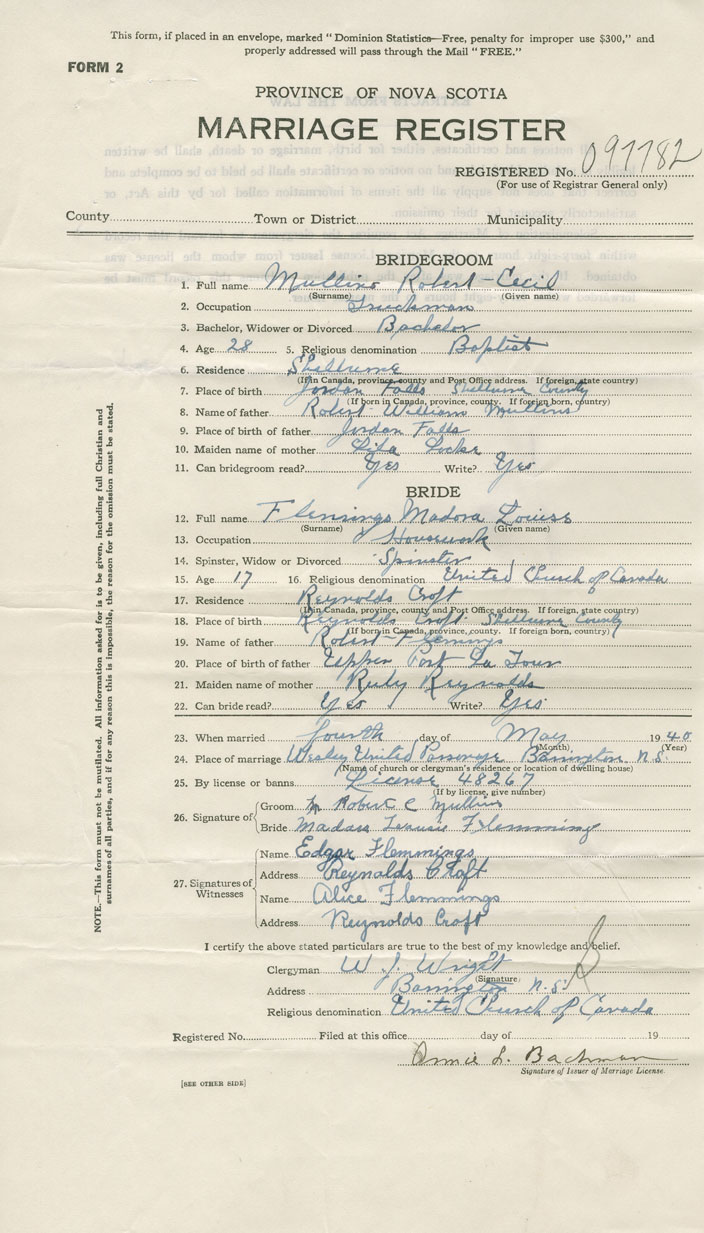 This form, if placed in an envelope, marked "Dominion Statistics—Free, penalty for improper use $300," and
properly addressed will pass through the Mail "FREE."
FORM 2
PROVINCE OF NOVA SCOTIA
MARRIAGE REGISTER
REGISTERED No. 097782
(For use of Registrar General only)
County Town or District Municipality
BRIDEGROOM
1. Full name Mullins Robert-Cecil
(Surname) (Given name)
2. Occupation Truckman
3. Bachelor, Widower or Divorced Bachelor
4. Age 28 5. Religious denomination Baptist
6. Residence Shelburne
(If in Canada, province, county and Post Office address. If foreign, state country)
7. Place of birth Jordan Falls Shelburne County
(If born in Canada, province, county. If foreign born, country)
8. Name of father Robert William Mullins
9. Place of birth of father Jordan Falls
10. Maiden name of mother Locke
11. Can bridegroom read? Yes Write? Yes
BRIDE
12. Full name Flemings Madora Louise
(Surname) (Given name)
13. Occupation Housework
14. Spinster, Widow or Divorced Spinster
15. Age 17 16. Religious denomination United Church of Canada
17. Residence Reynolds Croft
(If in Canada, province, county and Post Office address. If foreign, state country)
18. Place of birth Reynolds Croft Shelburne County
(If born in Canada, province, county. If foreign born, country)
19. Name of father Robert Flemings
20. Place of birth of father Upper Port La Tour
21. Maiden name of mother Ruby Reynolds
22. Can bride read? Yes Write? Yes
23. When married fourth day of May 1940
(Month) (Year)
24. Place of marriage Wesley United Parsonage Barrington N.S.
(Name of church or clergyman's residence or location of dwelling house)
25. By license or banns License 48267
(If by license, give number)
26. Signature of
Groom Robert C Mullins
Bride Flemming
27. Signatures of Witnesses
Name Edgar Flemmings
Address Reynolds Croft
Name Alice Flemmings
Address Reynolds Croft
I certify the above stated particulars are true to the best of my knowledge and belief.
Clergyman W. J. Wright
(Signature)
Address Barrington N.S.
Religious denomination United Church of Canada
Registered No. Filed at this office day of 19
Annie L. Bachman
Signature of Issuer of Marriage License.
[SEE OTHER SIDE]
NOTE.—This form must not be mutilated. All information asked for is to be given, including full Christian and
surnames of all parties, and if for any reason this is impossible, the reason for the omission must be stated.